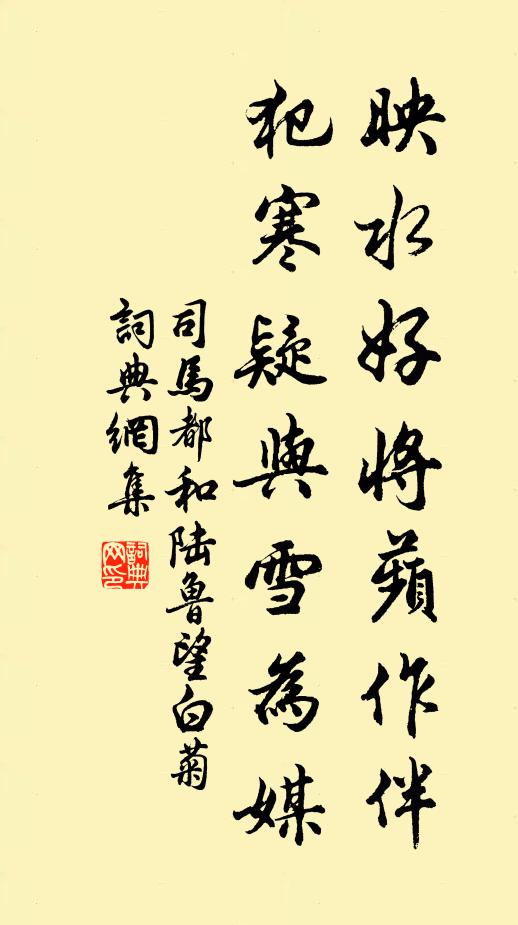 映水好將蘋作伴
犯寒疑與雪為媒
司馬都和陆鲁望白菊
詞典網集
詞典
网印